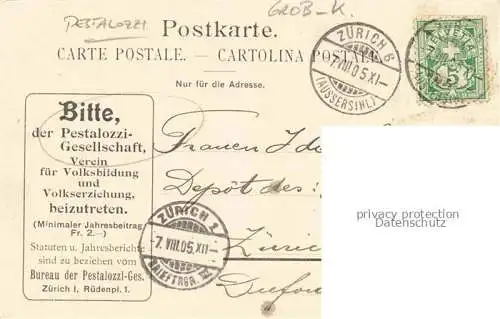 PESTALOZZI
GROB-K.
Postkarte.
CARTE POSTALE. — CARTOLINA POSTALE.
Nur für die Adresse.
ZÜRICH 6
7.VIII.05.XI—
(AUSSERSIHL)
HELVETIA
5
Bitte,
der Pestalozzi-
Gesellschaft,
Verein
für Volksbildung
und
Volkserziehung,
beizutreten.
(Minimaler Jahresbeitrag
Fr. 2.—)
Statuten u. Jahresberichte
sind zu beziehen vom
Bureau der Pestalozzi-Ges.
Zürich I, Rüdenpl. 1.
Frauen
Depôt des
Züric
ZÜRICH 1
7.VIII.05.XII—
BRIEFTRGR.
privacy protection
Datenschutz